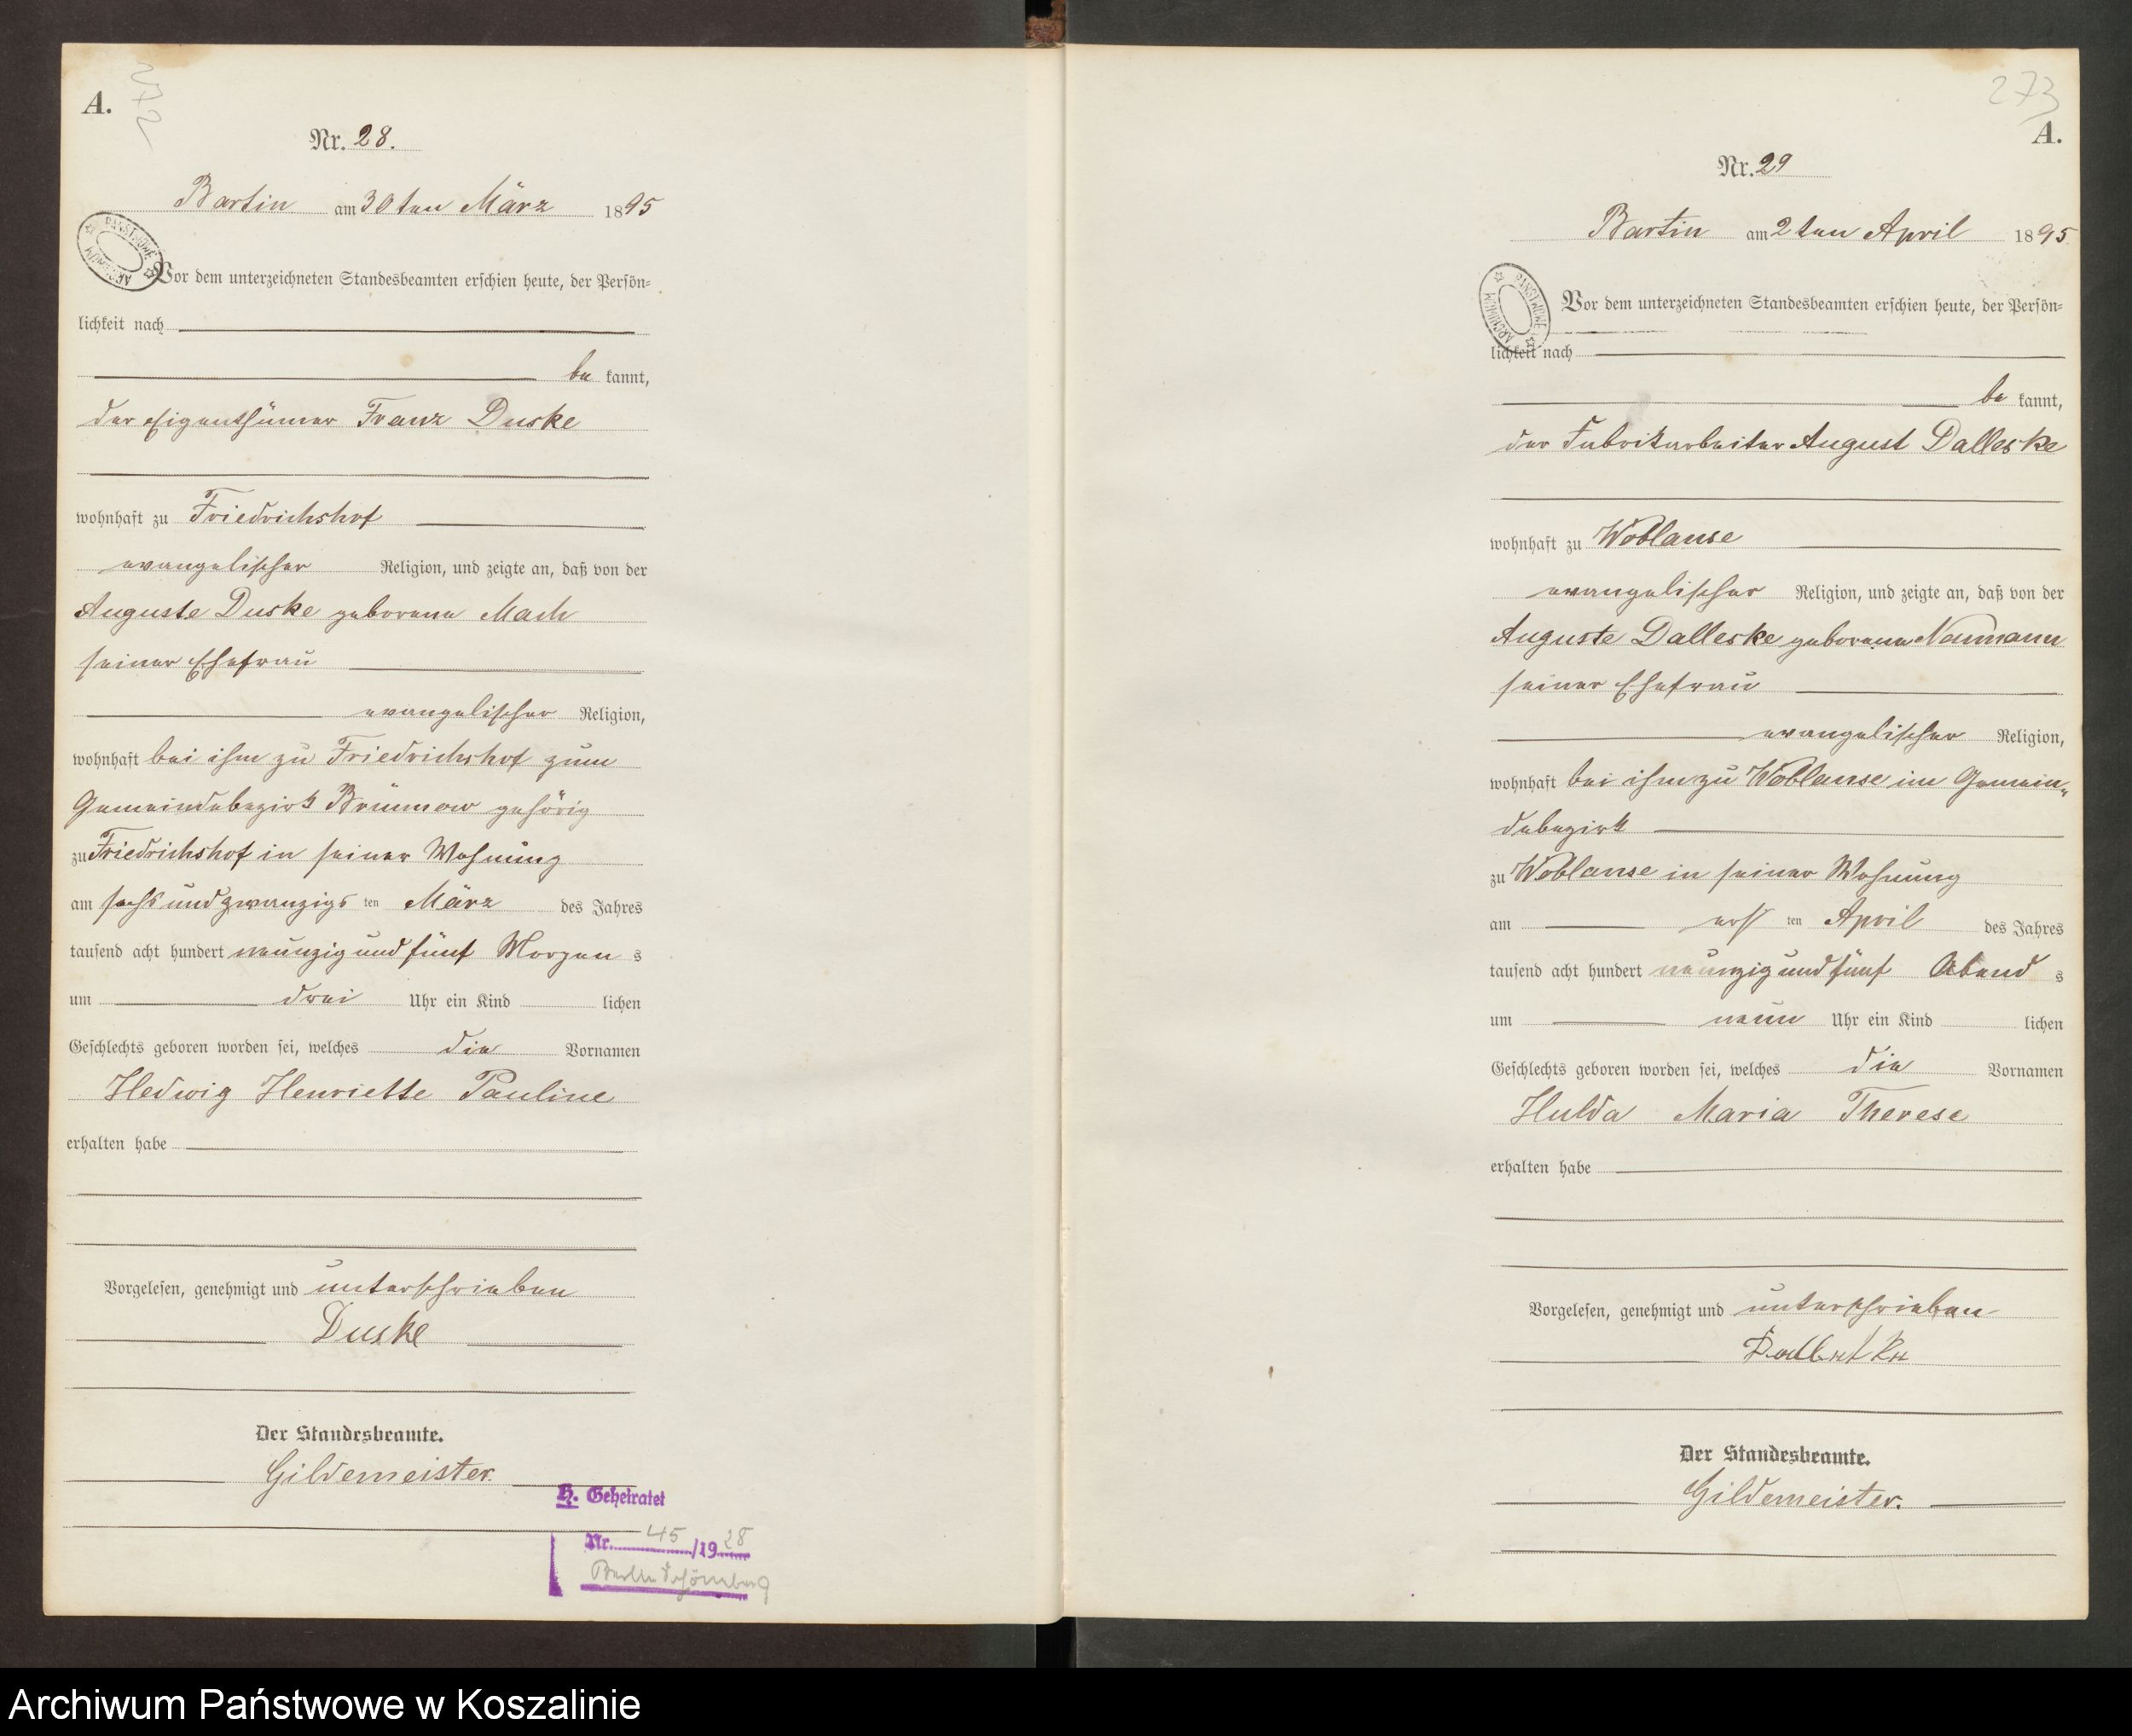 A.
272
Nr. 28.
Bartin am 30ten März 1895
Vor dem unterzeichneten Standesbeamten erschien heute, der Persön-
lichkeit nach
be kannt,
der Eigenthümer Franz Duske
wohnhaft zu Friedrichshof
evangelischer Religion, und zeigte an, daß von der
Auguste Duske geborene Mach
seiner Ehefrau
evangelischer Religion,
wohnhaft bei ihm zu Friedrichshof zum
Gemeindebezirk Brünnow gehörig
zu Friedrichshof in seiner Wohnung
am sechs und zwanzigs ten März des Jahres
tausend acht hundert neunzig und fünf Morgen s
um drei Uhr ein Kind lichen
Geschlechts geboren worden sei, welches die Vornamen
Hedwig Henriette Pauline
erhalten habe
Vorgelesen, genehmigt und unterschrieben
Duske
Der Standesbeamte.
Gildemeister.
H. Geheiratet
Nr. 45 /1928
Berlin Schöneberg
ARCHIWUM PAŃSTWOWE
273
A.
Nr. 29
Bartin am 2ten April 1895
Vor dem unterzeichneten Standesbeamten erschien heute, der Persön-
lichkeit nach
be kannt,
der Fabrikarbeiter August Dalleske
wohnhaft zu Woblanse
evangelischer Religion, und zeigte an, daß von der
Auguste Dalleske geborene Naumann
seiner Ehefrau
evangelischer Religion,
wohnhaft bei ihm zu Woblanse im Gemein„
debezirk
zu Woblanse in seiner Wohnung
am ers ten April des Jahres
tausend acht hundert neunzig und fünf Abend s
um neun Uhr ein Kind lichen
Geschlechts geboren worden sei, welches die Vornamen
Hulda Maria Therese
erhalten habe
Vorgelesen, genehmigt und unterschrieben
Der Standesbeamte.
Gildemeister.
ARCHIWUM PAŃSTWOWE
Archiwum Państwowe w Koszalinie